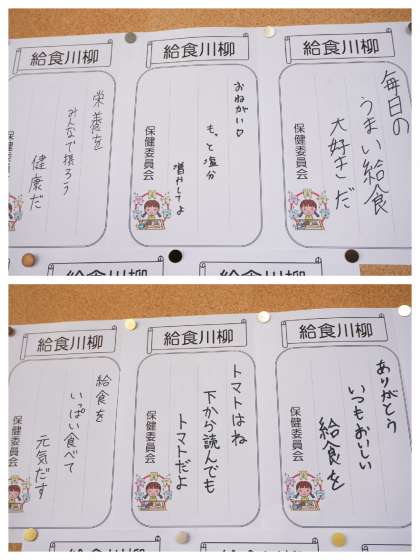 給食川柳
毎日の
うまい給食
大好きだ
保健委員会
給食川柳
おねがい♡
もっと塩分
増やしてよ
保健委員会
給食川柳
栄養を
みんなで摂ろう
健康だ
保健委員会
給食川柳
給食川柳
給食川柳
ありがとう
いつもおいしい
給食を
保健委員会
給食川柳
トマトはね
下から読んでも
トマトだよ
保健委員会
給食川柳
給食を
いっぱい食べて
元気だす
保健委員会